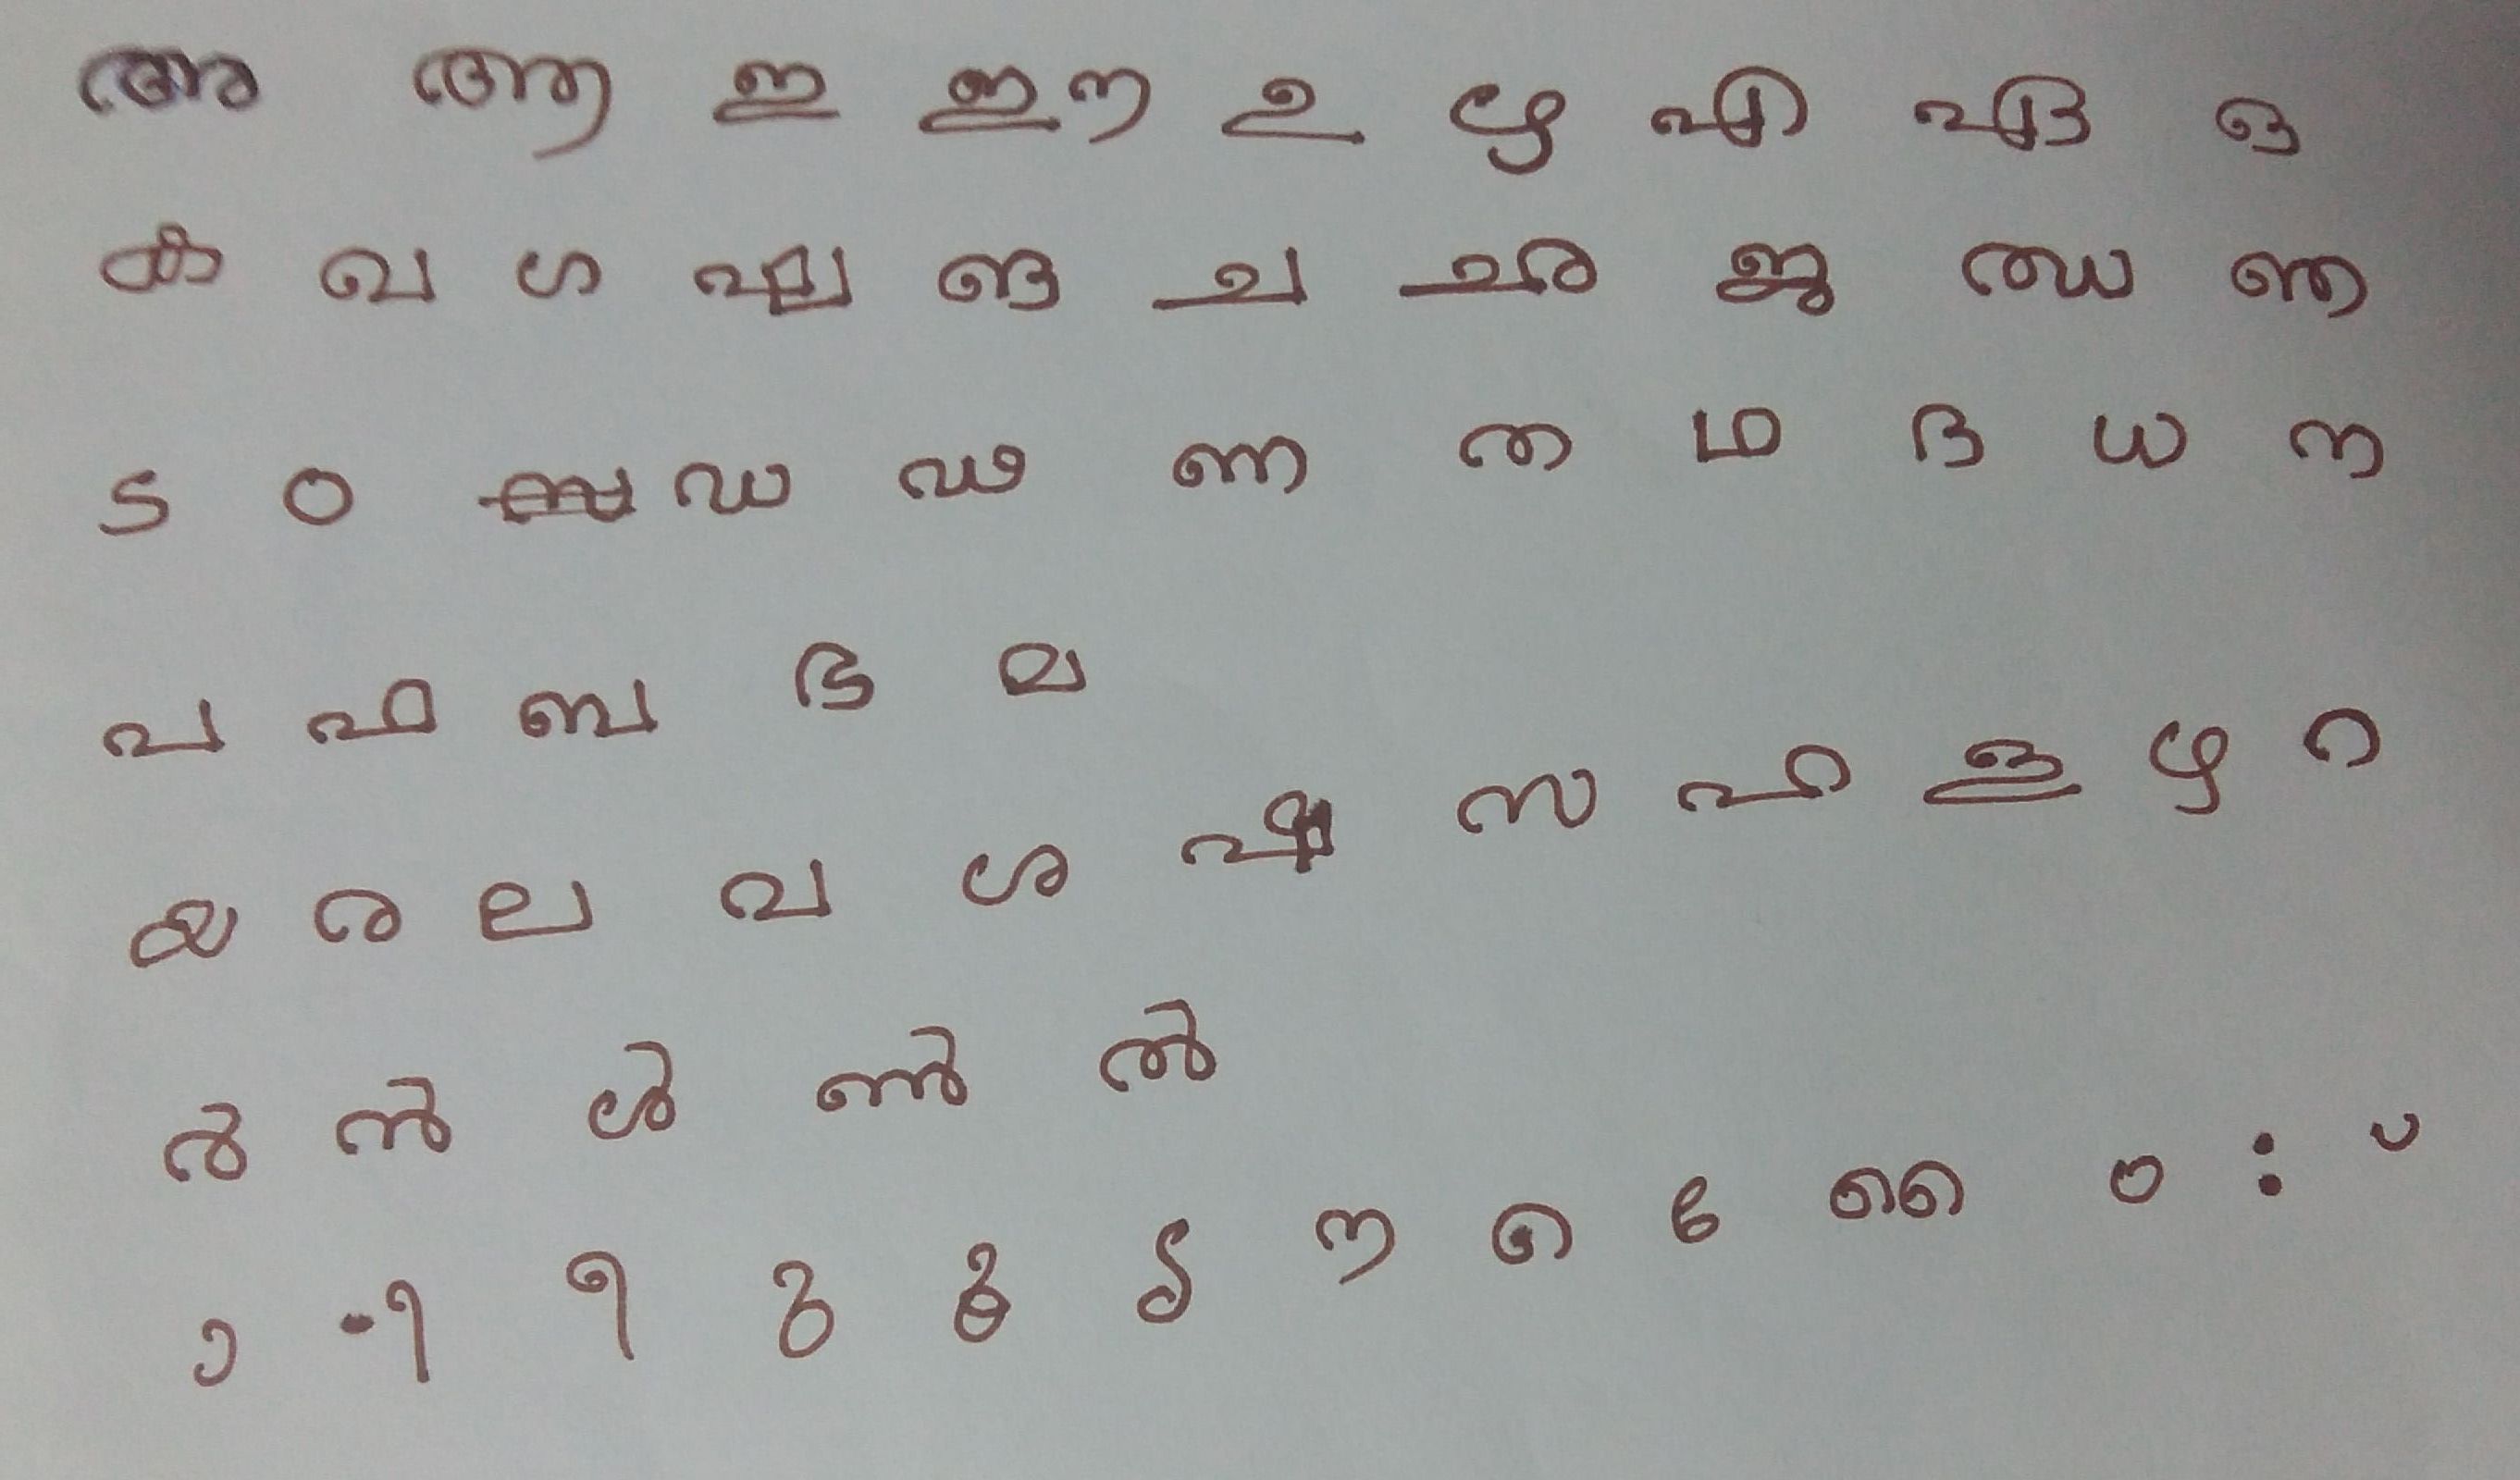 അ ആ ഇ ഈ ഉ ഴ എ ഏ ഒ
ക ഖ ഗ ഘ ങ ച ഛ ജ ഝ ഞ
ട ഠ ഡ ഢ ണ ത ഥ ദ ധ ന
പ ഫ ബ ഭ മ
യ ര ല വ ശ ഷ സ ഹ ള ഴ റ
ർ ൻ ൾ ൺ ൽ
ാ ി ീ ു ൂ ൃ ൗ െ േ ൈ ം ഃ ്